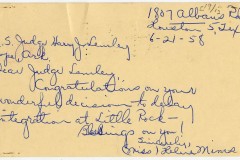 1807 Albans Rd
Houston 5, Tex
6-21-58
S. Judge Harry J. Lemley
Hope, Ark
Dear Judge Lemley,
Congratulations on your
wonderful decision to delay
integration at Little Rock—
Blessings on you!
Sincerely,